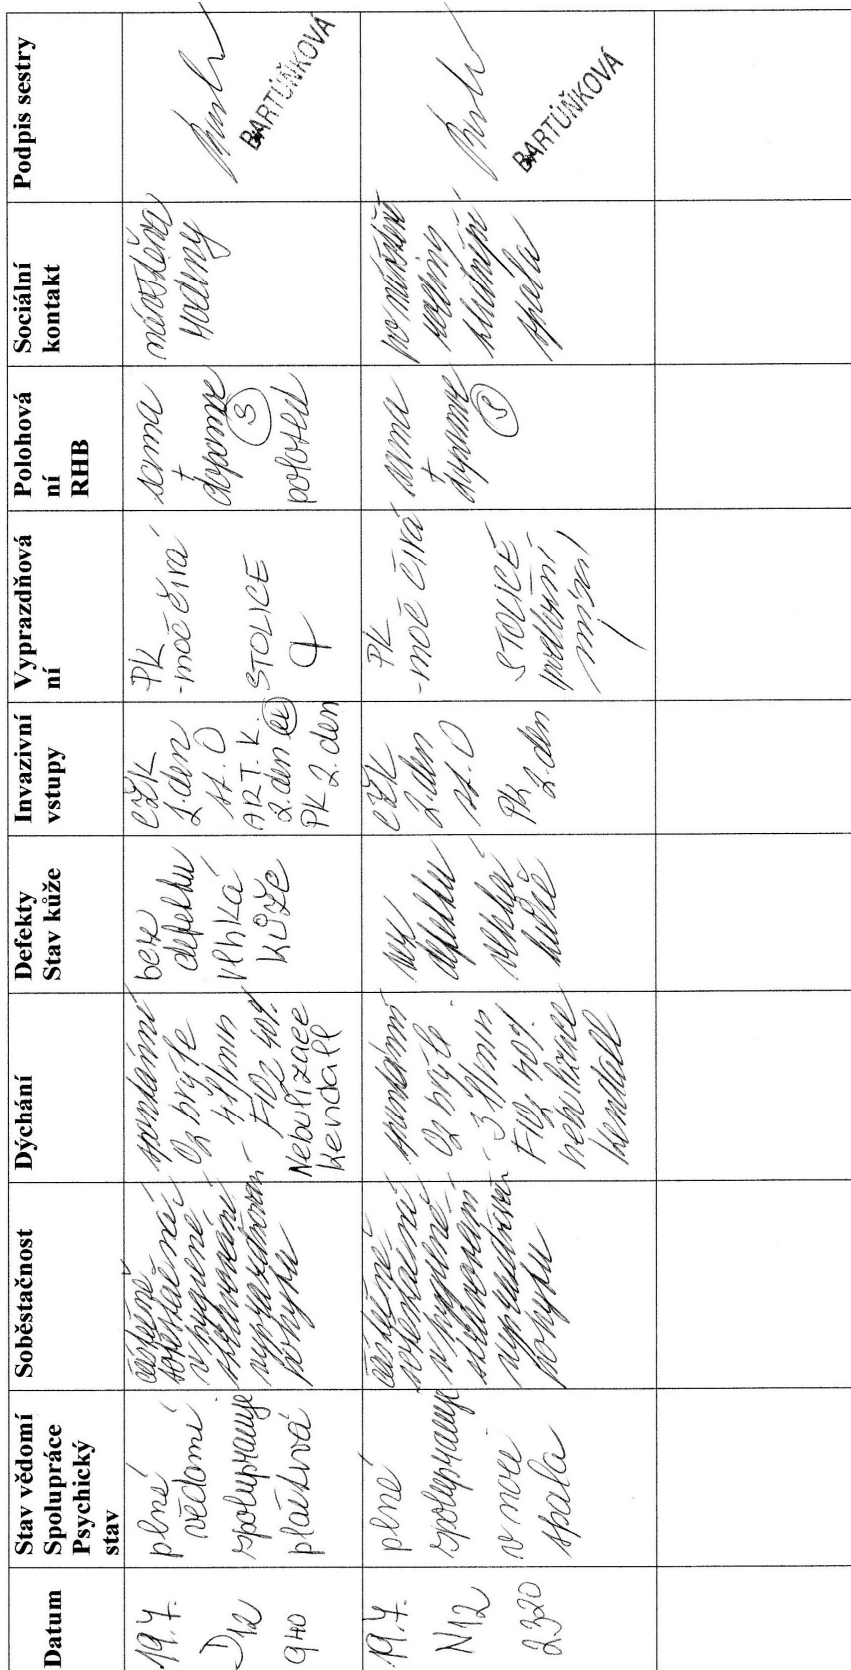 Datum
Stav vědomí
Spolupráce
Psychický
stav
Soběstačnost
Dýchání
Defekty
Stav kůže
Invazivní
vstupy
Vyprazdňová
ní
Polohová
ní
RHB
Sociální
kontakt
Podpis sestry
19.7.
D12
9 40
plné
vědomí
spolupracuje
plačtivá
částečně
soběstačná
v hygieně
vyprazdňování
pohybu
spontánní
O2 brýle
4 l/min
FIO2 40%
Nebulizace
Kendall
beze
defektu
vlhká
kůže
CŽK
1. den
st. O
ART. K.
2. den ex
PK 2. den
PK
- moč čirá
STOLICE
sama
dopomoc
S
polosed
návštěva
rodiny
BARTŮŇKOVÁ
19.7.
N12
23 20
plné
spolupracuje
v noci
spala
částečně
soběstačná
v hygieně
vyprazdňování
pohybu
spontánní
O2 brýle
3 l/min
FIO2 40%
nebulizace
kendall
bez
defektu
vlhká
kůže
CŽK
2. den
st. O
PK
2. den
PK
- moč čirá
STOLICE
sama
S
po návštěvě
rodiny
spala
BARTŮŇKOVÁ